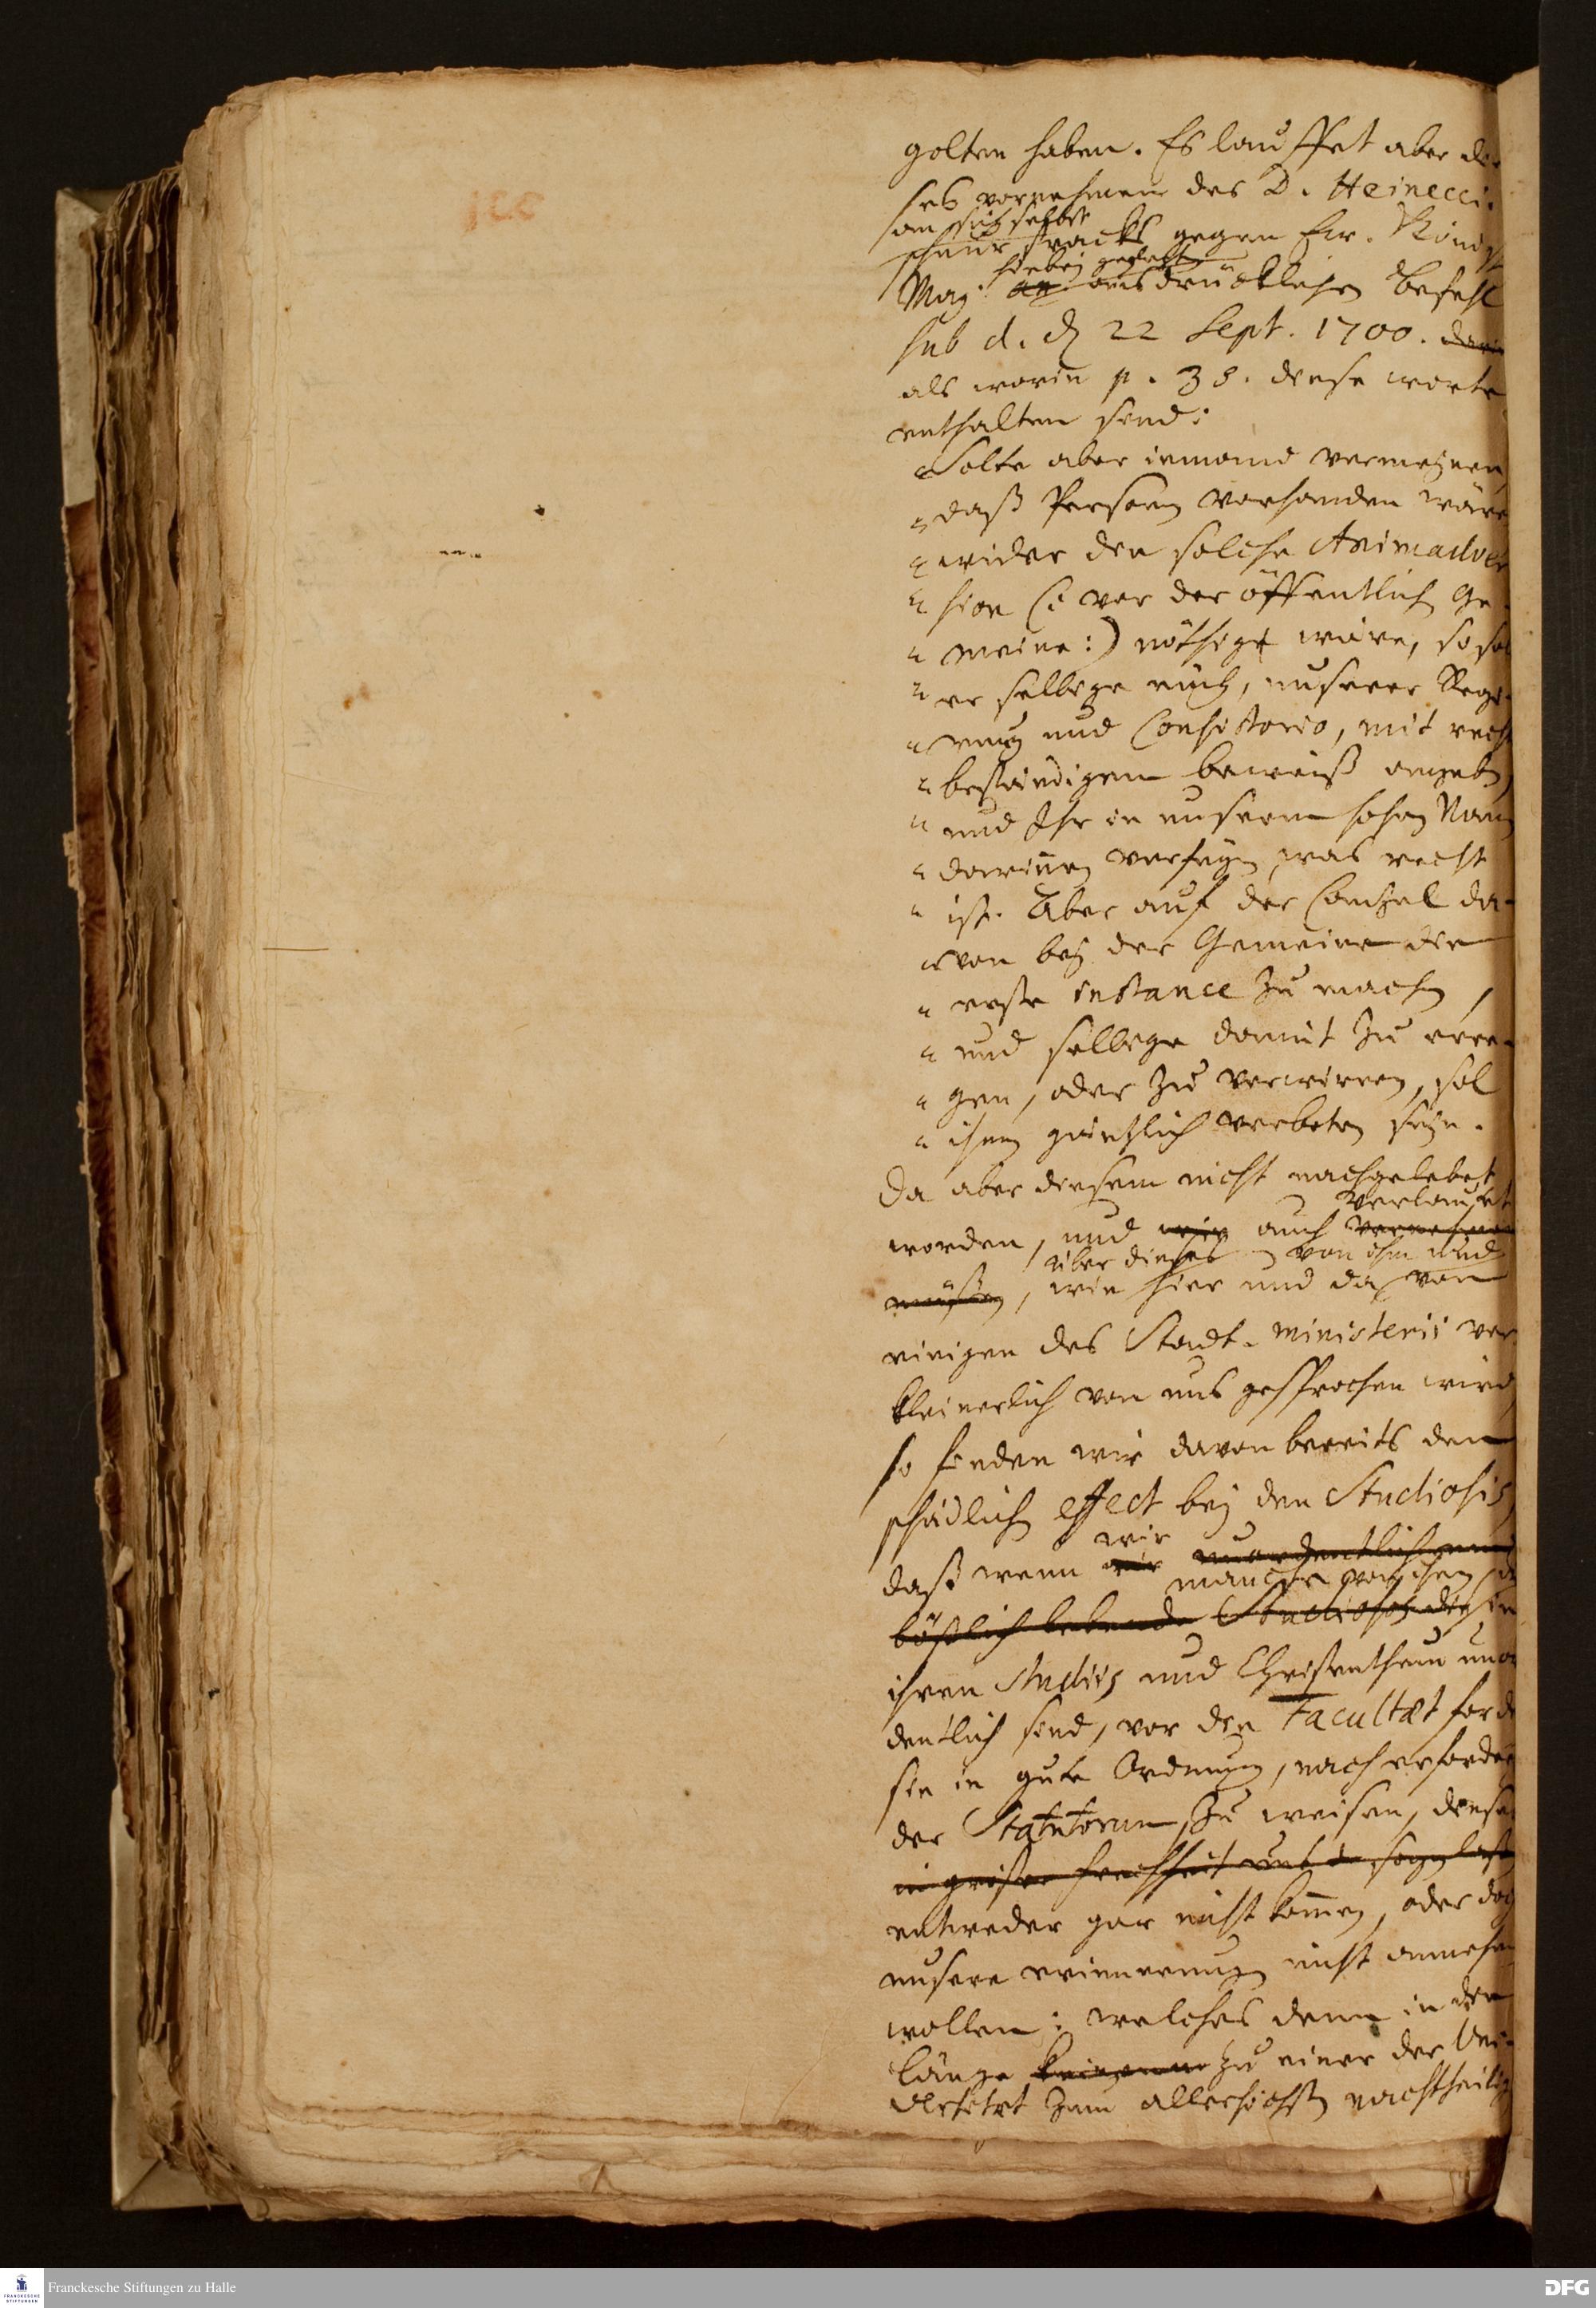 golten haben. Es lauffet aber die
ses vornehmen des D. Heinecci.
an sich selbst
schnur stracks gegen Ew. Königl
hiebey gefügt
Maj. ausdrücklichen Befehl
sub d. d 22 Sept. 1700. darin
als worin p. 38. diese worte
enthalten sind:
Solte aber iemand vermeynen,
daß Person vorhanden wäre
wider den solche Animadver
sion (: vor der öffentlich Ge-
meine :) nöthig wäre, so sol
er selbige euch, unserer Regi-
rung und Consistorio, mit recht
beständigem beweiß angeben,
und Ihr in unserm hohen Nam
darinnen verfügen, was recht
ist. Aber auf der Cantzel da-
von bey der Gemeine die
erste instance zu machen,
und selbige damit zu erre-
gen, oder zu verwirren, sol
ihnen gäntzlich verboten seyn.
Da aber diesem nicht nachgelebet
verlautet
worden, und wir auch vernehmen
über dieses von ihm und
müßen, wie hier und da von
einigen des Stadt-ministerii ver
kleinerlich von uns gesprochen wird,
so finden wir davon bereits den
schädlichen effect bey den Studiosis,
wir
daß wenn wir unordentlich und
manche von ihnen, die
bößlich lebende Studiosos die in
ihren Studiis und Christenthum unor
dentlich sind, vor die Facultæt fordern
sie in gute Ordnung, nach erfordern
der Statutorum, zu weisen, diese
entweder gar nicht kommen, oder doch
unsere erinnerung nicht annehmen
wollen: welches denn in der
länge zu einer der Uni-
versitæt zum allerhöchsten nachtheilig
Franckesche Stiftungen zu Halle
DFG